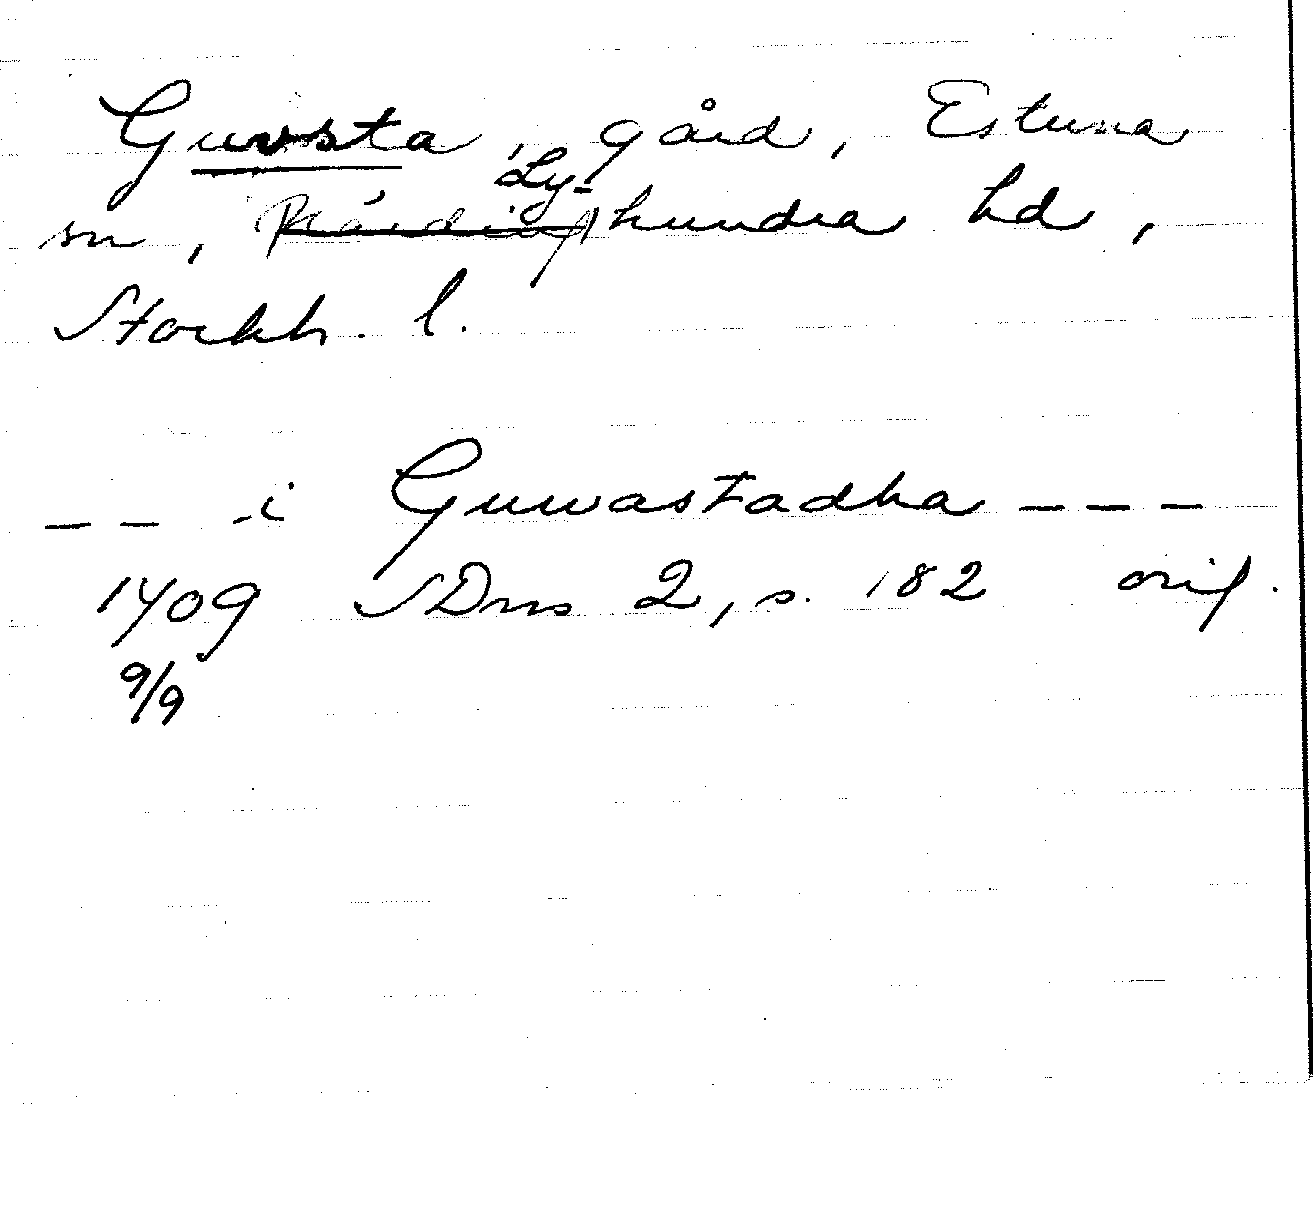 Guvsta, gård, Estuna
sn, Lyhundra hd,
Stockh. l.
-- i Guwastadha ---
1409 SDns 2, s. 182 orig.
9/9